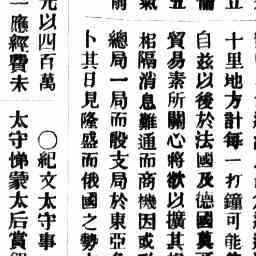 立
十里地方計每一打鐘可能
自茲以後於法國及德國莫
貿易素所關心將欲以擴其
氣
相隔消息難通而商機因或
前
總局一局而設支局於東亞
卜其日見隆盛而俄國之勢
以四百萬
〇紀文太守事
一應經費未
太守悌蒙太后賞